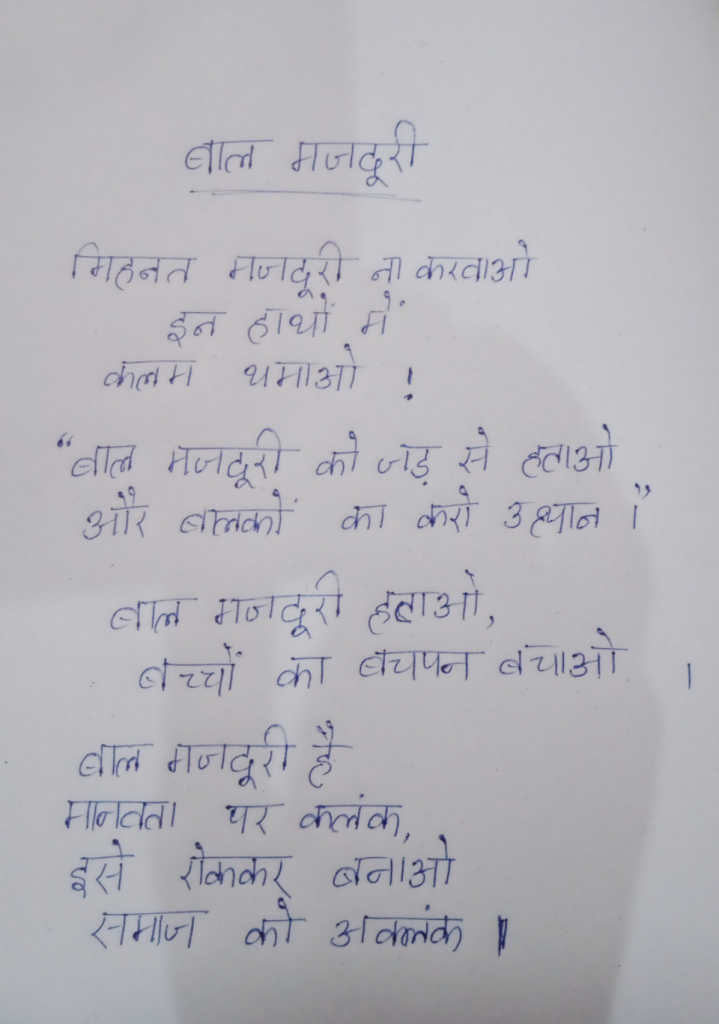 बाल मजदूरी
मिहनत मजदूरी ना करवाओ
इन हाथों में
कलम थमाओ !
“बाल मजदूरी को जड़ से हटाओ
और बालकों का करो उत्थान ।”
बाल मजदूरी हटाओ,
बच्चों का बचपन बचाओ ।
बाल मजदूरी है
मानवता पर कलंक,
इसे रोककर बनाओ
समाज को अकलंक ।